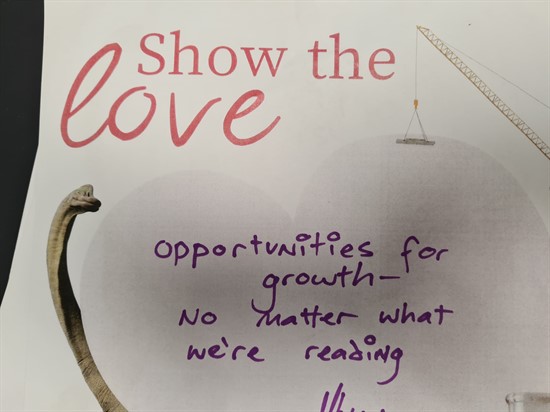 Show the
love
opportunities for
growth-
No matter what
we're reading